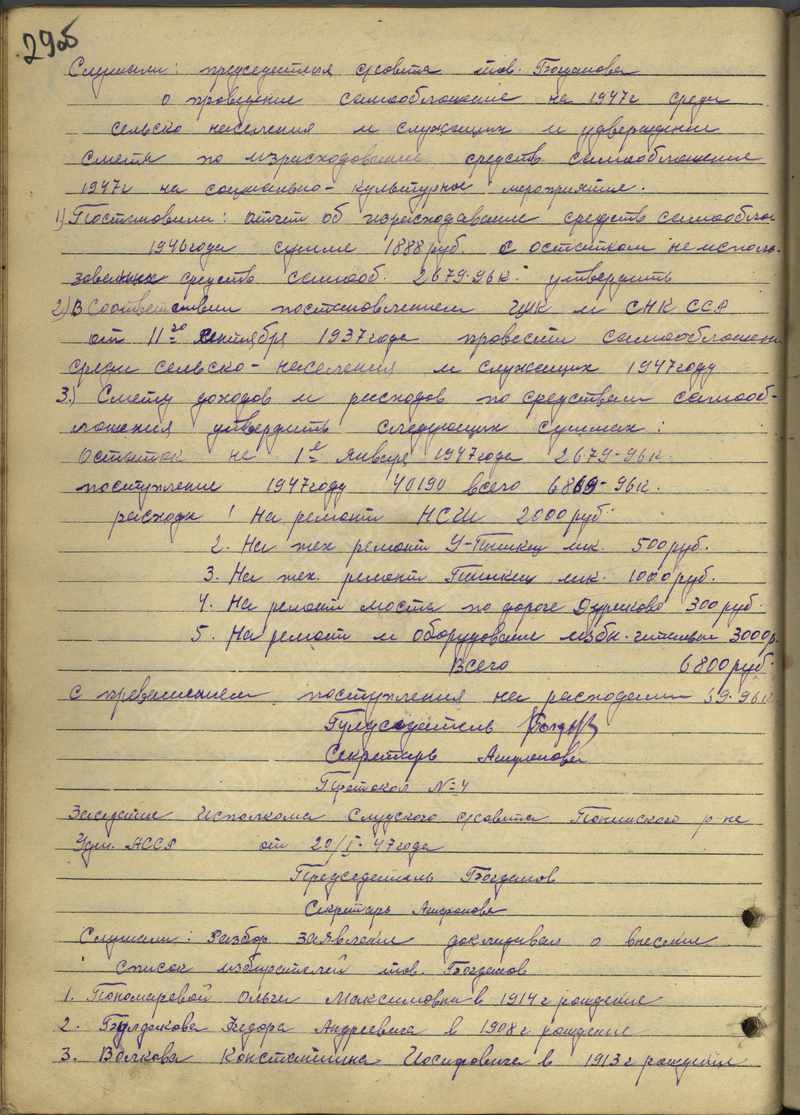 29об
Слушали: председателя с/совета тов. Богданова
о проведение самообложение на 1947г среди
сельско населения и служащих и удверждении
смета по израсходования средств самообложения
1947г на социально-культурные мероприятия.
1) Постановили: отчет об израсходование средств самообло
1946 года сумме 1888 руб. с остатком не исполь-
зованных средств самооб. 2679-96к. утвердить
2) В соответствии постановлением ЦИК и СНК ССР
от 11го сентября 1937 года провести самообложени
среди сельско-населения и служащих 1947 году
3.) Смету доходов и расходов по средствам самооб-
ложения утвердить следующих суммах:
Остаток на 1е января 1947 года 2679-96к
поступление 1947 году 40190 всего 6869-96к.
расходы 1 На ремонт НСШ 2000 руб.
2. На тех ремонт У- мк. 500 руб.
3. На тех. ремонт мк. 1000 руб.
4. На ремонт моста по дороге 300 руб.
5. На ремонт и оборудование избы-читальни 3000 р
Всего 6800 руб.
с превышением поступления на расходами 69-96к
Секретарь
Протокол №4
Заседание Исполкома с/совета Понинского р-на
Удм. АССР от 20/I-47 года
Председатель Богданов
Секретарь
Слушали: Разбор заявления докладывал о внесение
список избирателей тов. Богданов
1. Пономаровой Ольги Максимовна в 1914 г рождение
2. Федора Андреевича в 1908 г рождение
3. Волкова Константина Иосифовича в 1913 г рождения